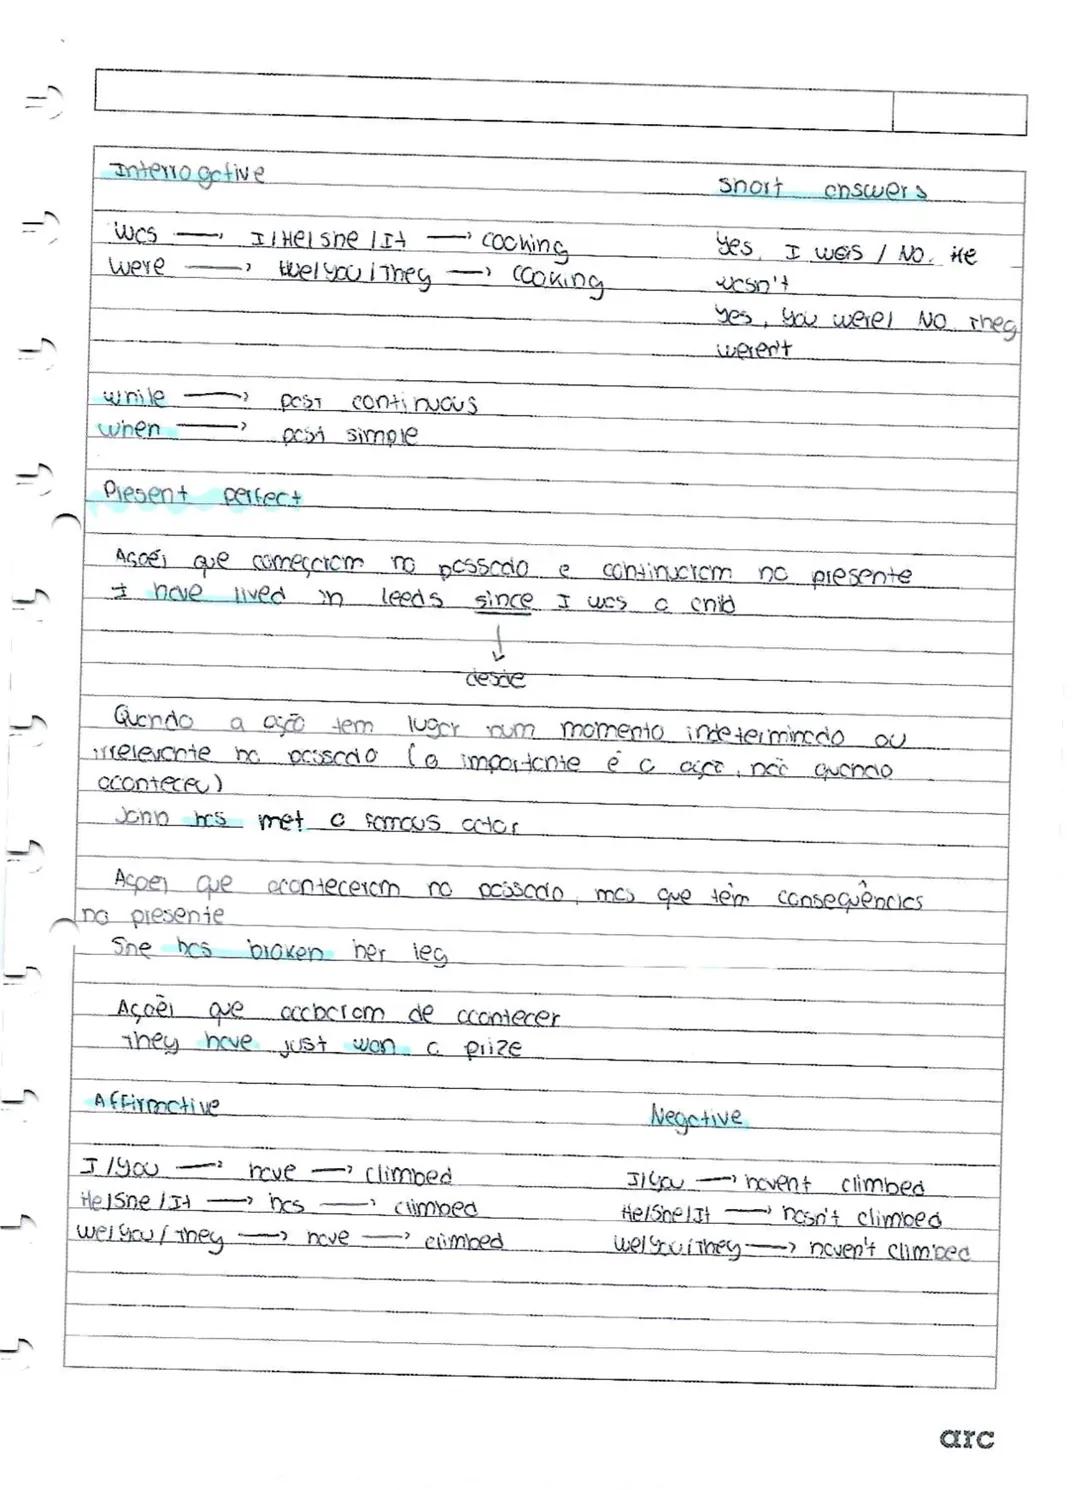 Interrogative Short answers
Was → I/He/She/It → cooking Yes, I was / No, He
Were → We/you/They → cooking wasn't
Yes, you were/ No They
weren't
while → past continuous
when → past simple
Present perfect
Ações que começaram no passado e continuaram no presente
I have lived in leeds since I was a child
desde
Quando a ação tem lugar num momento indeterminado ou
irrelevante no passado (o importante é a ação, não quando
aconteceu)
John has met a famous actor
Ações que aconteceram no passado, mas que têm consequências
no presente
She has broken her leg
Ações que acabaram de acontecer
They have just won a prize
Affirmative Negative
I/you → have → climbed I/you → haven't climbed
He/She/It → has → climbed He/She/It → hasn't climbed
We/you/They → have → climbed We/you/They → haven't climbed
arc